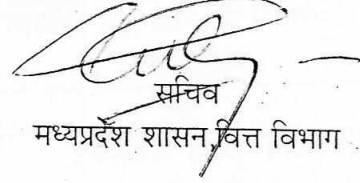 सचिव
मध्यप्रदेश शासन,वित्त विभाग